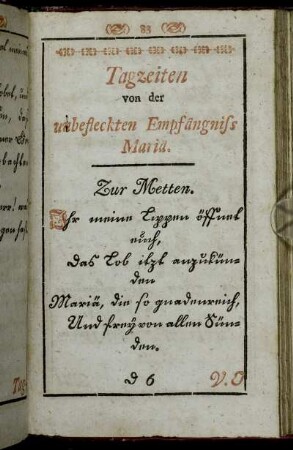 83
Tagzeiten
von der
unbefleckten Empfängniss
Mariä.
Zur Metten.
Ihr meine Lippen öffnet
euch,
das Lob itzt anzukün-
den
Mariä, die so gnadenreich,
Und frey von allen Sün-
den.
d 6 V. O